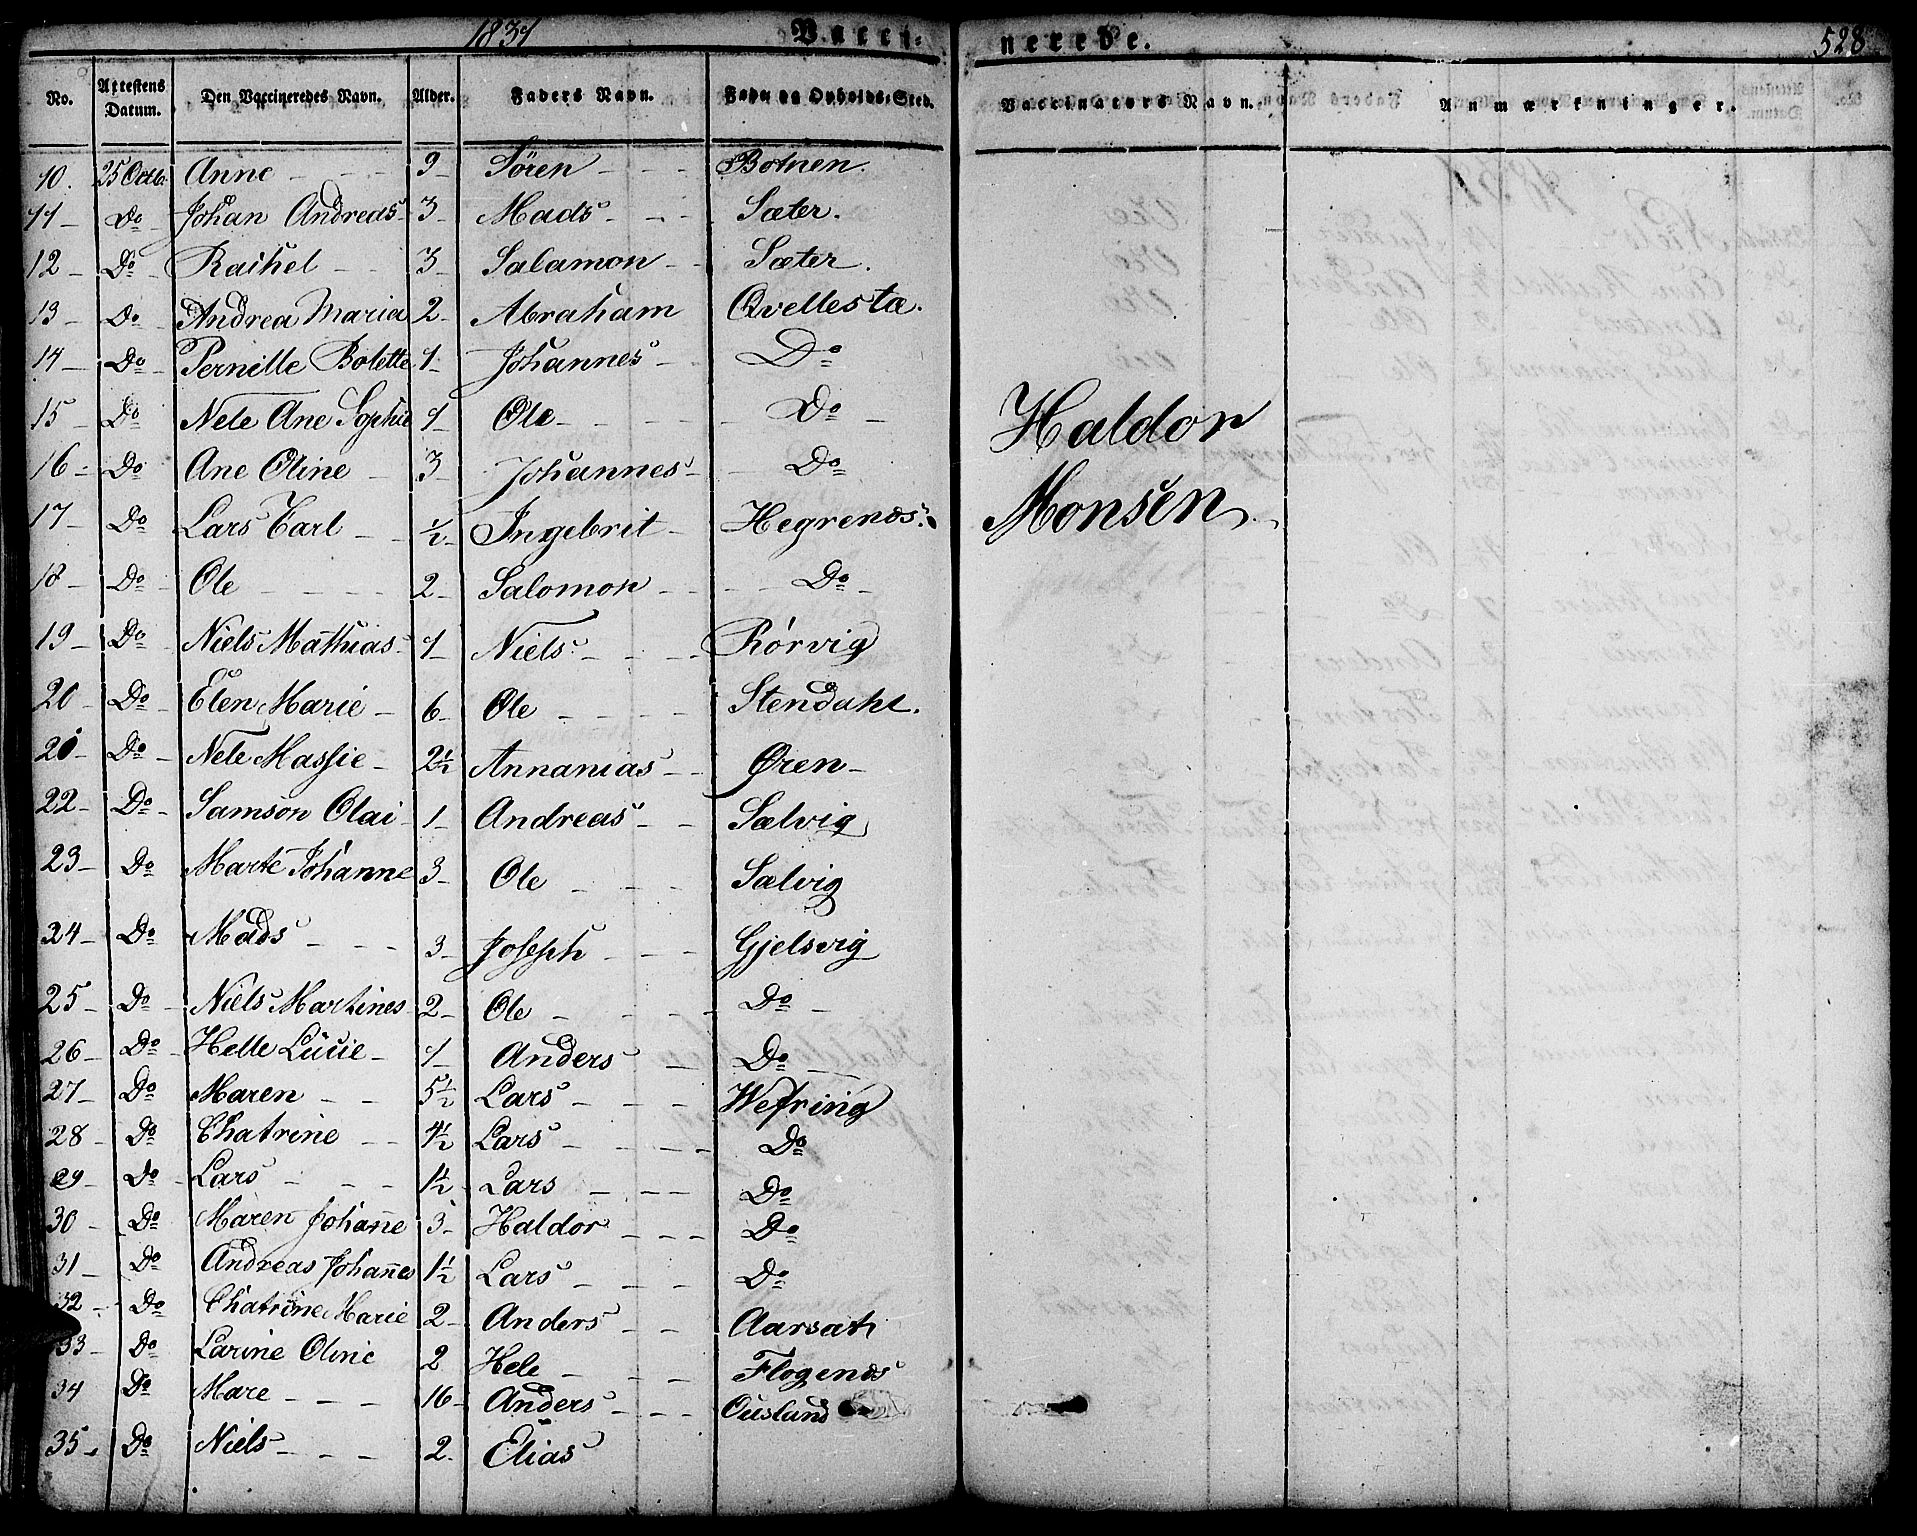 1831 Vacci- nerede. 528
No. Attestens Datum. Den Vaccineredes Navn. Alder. Faders Navn. Føde og Opholds-Sted. Vaccinateurs Navn. Anmærkninger.
10. 25 Octb. Anne - - - 9 - Sören - - - Botnen.
11 - Do - Johan Andreas - 3 - Mads - - - Sæter.
12 - Do - Rachel - - 3 - Salamon - - Sæter.
13 - Do - Andrea Maria 2 - Abraham Qvellestæ.
14 - Do - Pernille Bolette 1 - Johannes - Do
15 - Do Nele Ane Sophie 1 - Ole - - - Do -
16 - Do Ane Oline - 3 - Johannes - - Do
17 - Do Lars Carl - - 1/2 - Ingebrit - Hegrenæs.
18 - Do - Ole - - - - 2 - Salomon - - - - Do -
19 - Do - Niels Mathias - 1 - Niels - - - - Rørvig
20 - Do - Elen Marie - 6 - Ole - - - - Stendahl.
21 - Do - Nele Massie - 2 1/2 Annanias - - Øren -
22 - Do - Samson Olai - 1 - Andreas - - Sælvig
23 - Do Marte Johanne 3 - Ole - - - Sælvig
24 - Do - Mads - - - 3 - Joseph - - - Gjelsvig
25 - Do - Niels Martines 2 - Ole - - - - Do -
26 - Do - Helle Lucie - 1 - Anders - Do -
27 - Do Maren - - 5 1/2 Lars - - - Wefring
28 - Do - Chatrine - - 4 1/2 Lars - - - - Do
29 - Do - Lars - - - 1 1/2 - Lars - - - Do
30 - Do Maren Johanne 3 - Haldor - - - Do
31 - Do Andreas Johannes 1 1/2 Lars - - - Do
32 - Do - Chatrine Marie 2 - Anders - - Aarsat
33 - Do - Larine Oline 2 Hele - - - Flogenæs
34 Do Mare - - - 16 - Anders - - - Ouslund
35 - Do Niels - - - 2 - Elias
Haldor
Monsen